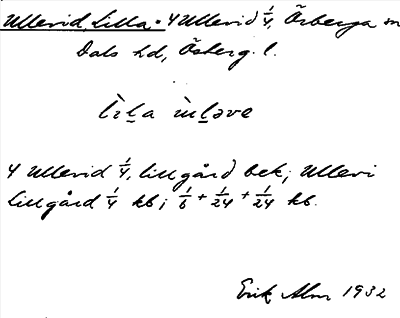 Ullevid, Lilla. 4 Ullevid 1/4, Örberga sn
Dals hd, Österg. l.
lìl̠a ùl̠əve
4 Ullevid 1/4, lillgård bek; Ullevi
Lillgård 1/4 kb; 1/6 + 1/24 + 1/24 kb.
Erik Alm 1932